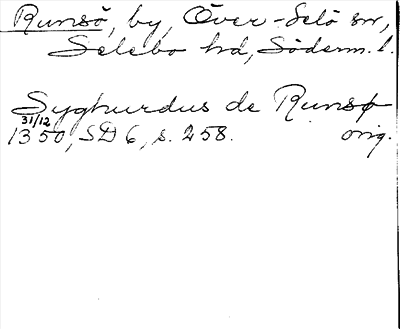 Runsö, by, Över-Selö sn,
Selebo hd, Söderm. l.
Syghurdus de Runsø
31/12
1350, SD 6, s. 258. orig.